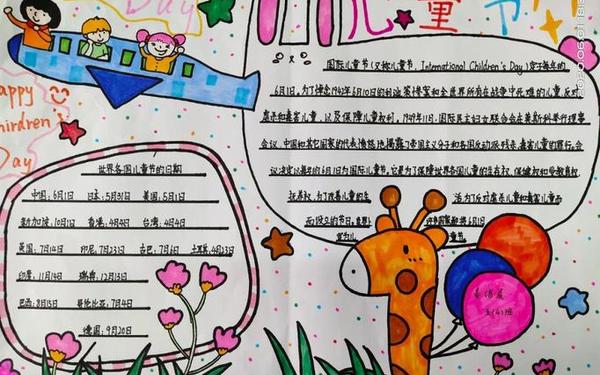 Day
儿童节
Happy
Children's
Day
国际儿童节(又称儿童节,International Children's Day)定于每年的
6月1日。为了悼念1942年6月10日的利迪策惨案和全世界所有在战争中死难的儿童,反对
虐杀和毒害儿童,以及保障儿童权利,1949年11月,国际民主妇女联合会在莫斯科举行理事
会议,中国和其它国家的代表愤怒地揭露了帝国主义分子和各国反动派残杀、毒害儿童的罪行。会
议决定以每年的6月1日为国际儿童节。它是为了保障世界各国儿童的生存权、保健权和受教育权、
抚养权,为了改善儿童的生活,为了反对虐杀儿童和毒害儿童
而设立的节日。
许多国家都将6月1日
定为儿
童节。
世界各国儿童节的日期
中国:6月1日 日本:5月5日 美国:5月1日
新加坡:10月1日 香港:4月4日 台湾:4月4日
英国:7月14日 印尼:7月23日 古巴:7月6日 土耳其:4月23日
印度:11月14日 瑞典:12月13日
巴西:8月15日 哥伦比亚:7月4日
德国:9月20日